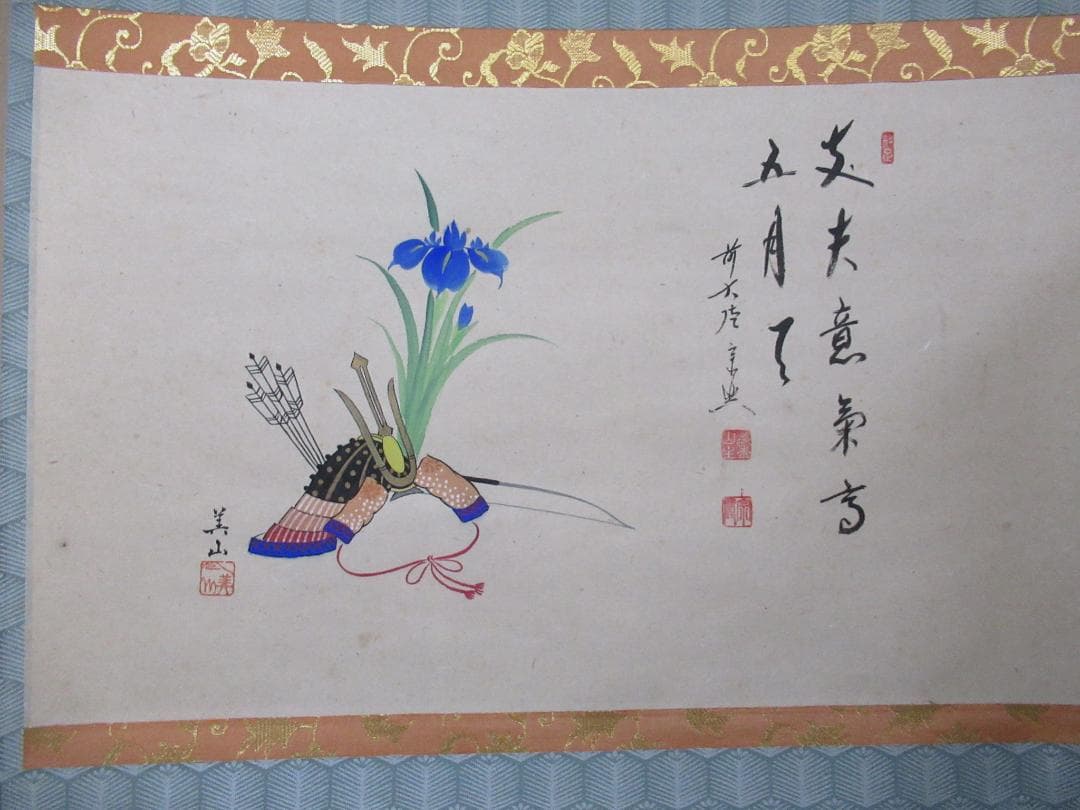 丈夫意氣高
五月天
前大徳宗
美山